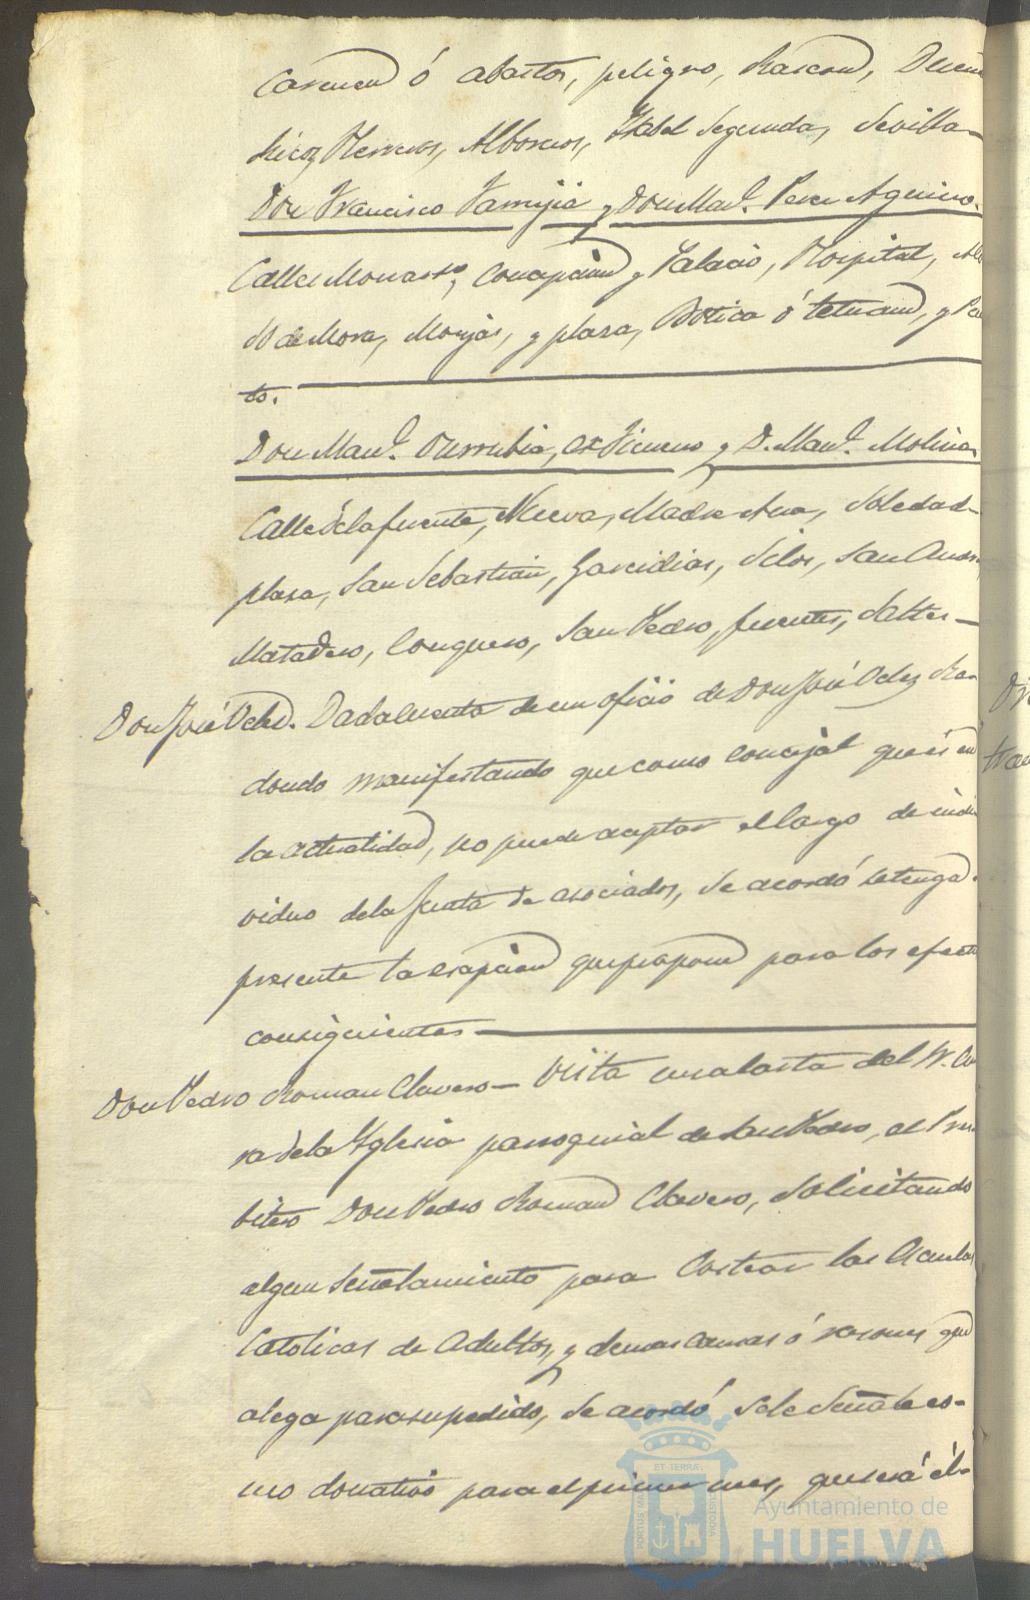 ó abastos, peligro, Rascon,
Herreros, Albornos, Isabel Segunda, Sevilla—
Don Francisco y Don Man.l Perez Aquino.
Calle Monasterio, Concepcion y Palacio, Hospital,
de Mora, Monjas, y plaza, Botica ó tetuan, y
to.
Don Man.l y D. Man.l Molina
Calle de la fuente, Nueva, Madre Ana, Soledad—
plaza, San Sebastian, Garcidias, Silos, San
Matadero, Conquero, San Pedro, fuentes, Saltes—
Don José Velez. Dada cuenta de un oficio de Don José Velez Ra
dondo manifestando que como concejal que es en
la actualidad, no puede aceptar el cargo de indi
viduo de la Junta de asociados, se acordó se tenga
presente la esepcion que propone para los efectos
consiguientes —
Don Pedro Roman Clavero— Vista una carta del Sr. Cu
ra de la Yglesia parroquial de San Pedro, el Pres
bitero Don Pedro Roman Clavero, solicitando
algun señalamiento para Costear las
Catolicas de Adultos, y demas causas ó razones que
alega para su pedido, se acordó se le señale co-
mo donativo para el primer mes, que será él
Ayuntamiento de
HUELVA